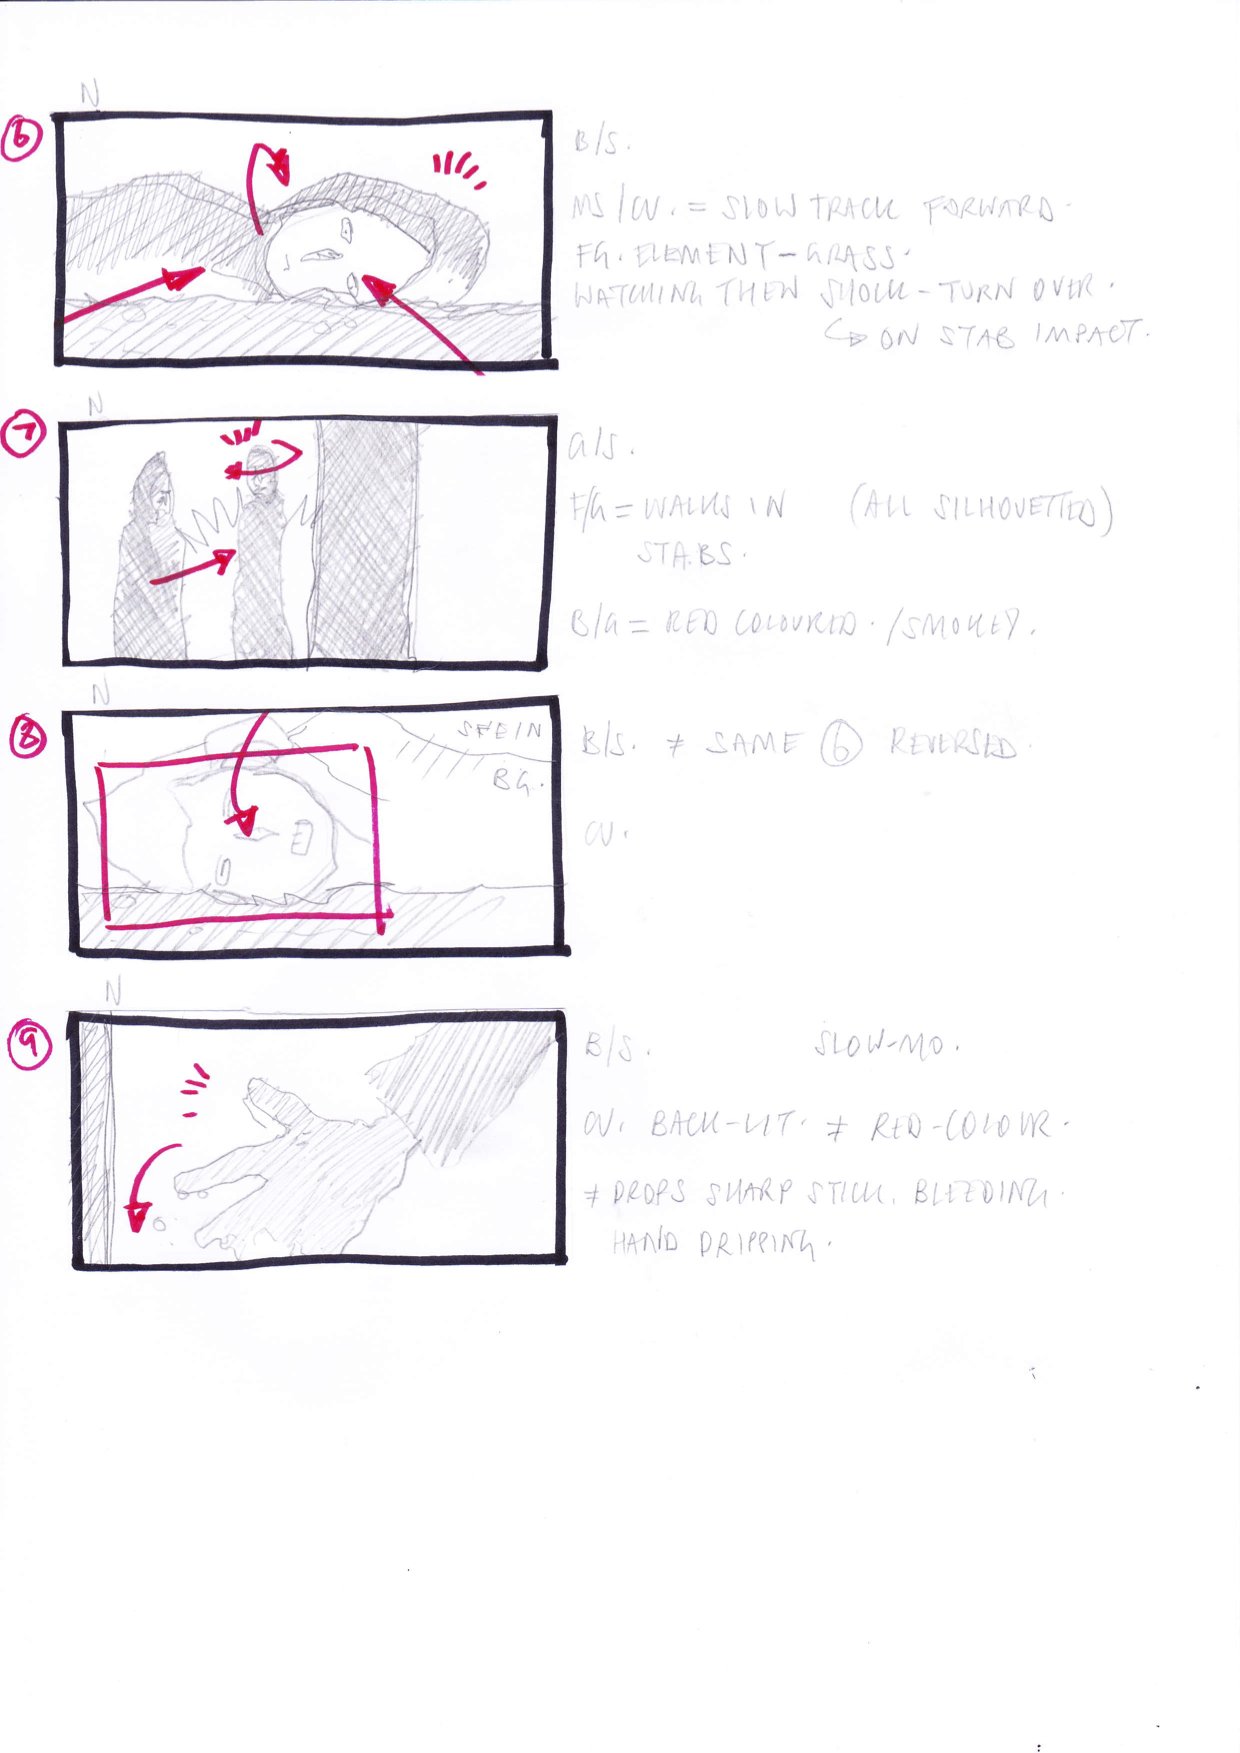 N
6
B/S.
MS/CU. = SLOW TRACK FORWARD.
FG. ELEMENT - GRASS.
WATCHING THEN SHOCK - TURN OVER.
↳ ON STAB IMPACT.
N
7
G/S.
F/G = WALKS IN (ALL SILHOUETTED)
STABS.
B/G = RED COLOURED. /SMOKEY.
N
8
BG.
B/S. ≠ SAME ⑥ REVERSED.
CU.
N
9
B/S. SLOW-MO.
CU. BACK-LIT. ≠ RED-COLOUR.
≠ DROPS SHARP STICK. BLEEDING.
HAND DRIPPING.